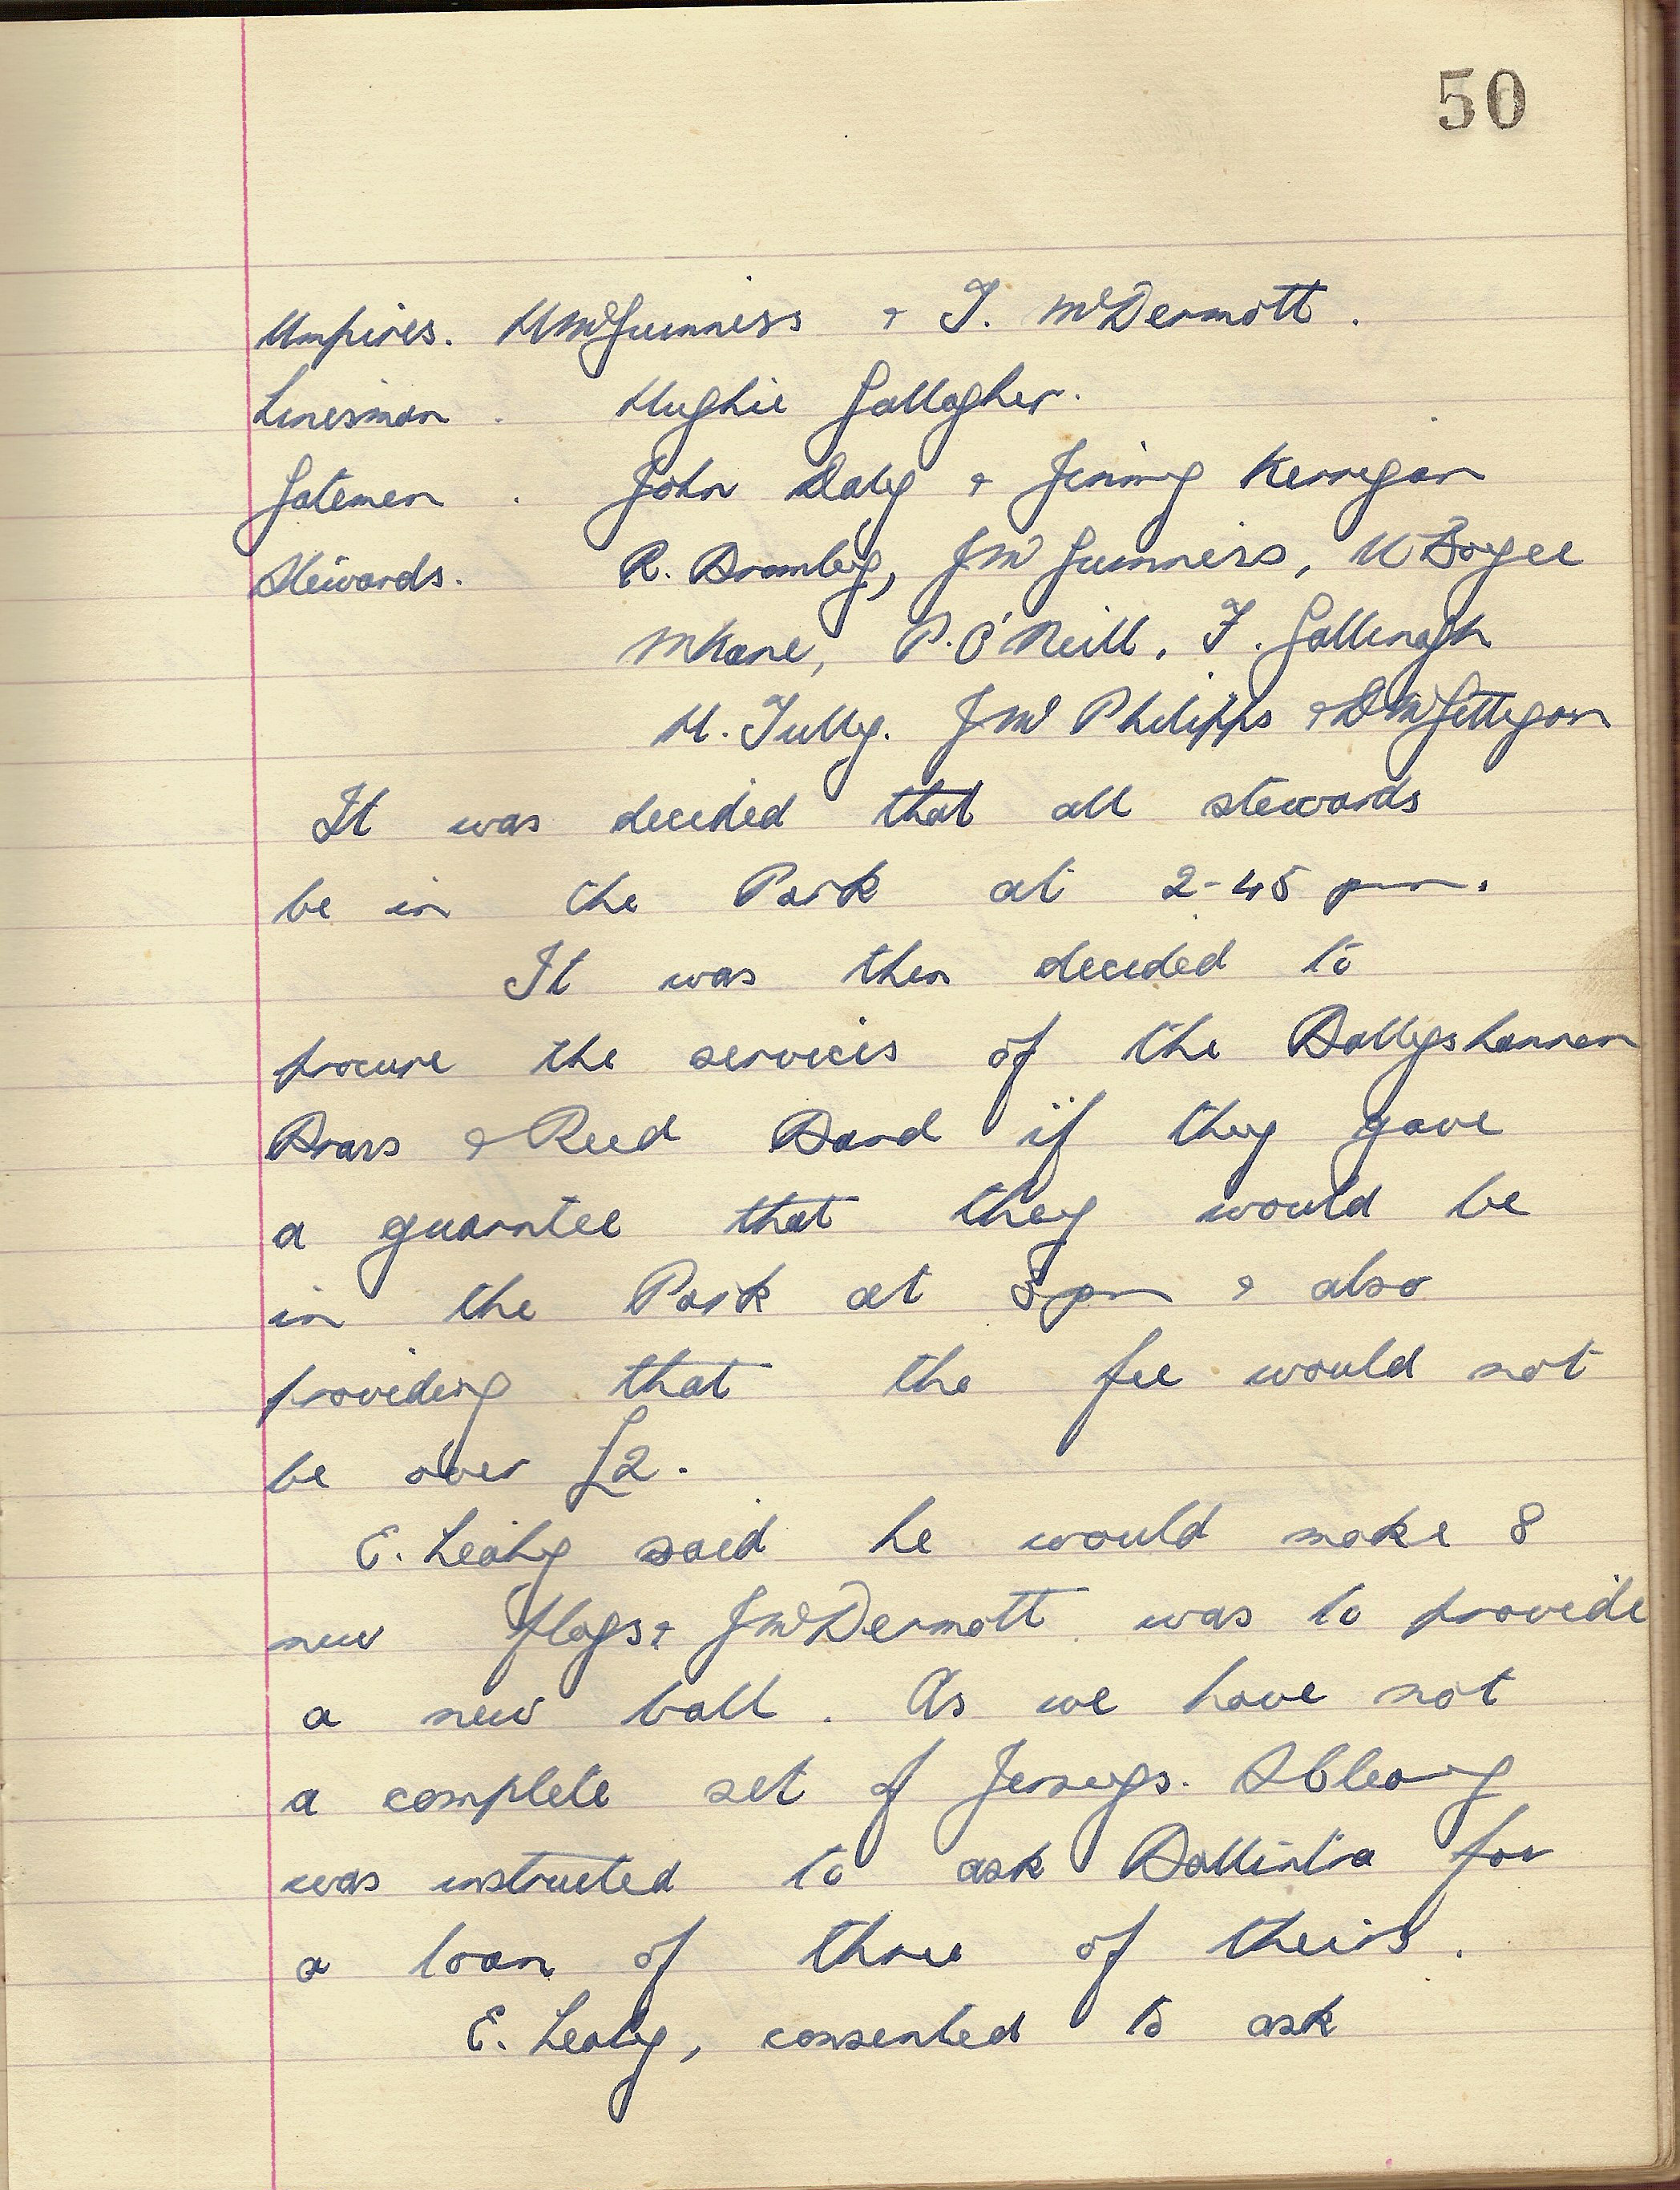 50
Umpires. H McGuinness & T. McDermott.
Linesman. Hughie Gallagher.
Gatemen. John Daly & Jimmy Kerrigan
Stewards. R. Bromley, J Mc Guinness, U Boyce
M Kane, P. O'Neill, F. Gallinagh
H. Tully. J Mc Philipps & D McGettigan
It was decided that all stewards
be in the Park at 2-45 pm.
It was then decided to
procure the services of the Ballyshannon
Brass & Reed Band if they gave
a guarntee that they would be
in the Park at 3pm & also
providing that the fee would not
be over £2.
E. Leahy said he would make 8
new flags & J McDermott was to provide
a new ball. As we have not
a complete set of Jerseys. S Cleary
was instructed to ask Ballintra for
a loan of three of theirs.
E. Leahy, consented to ask